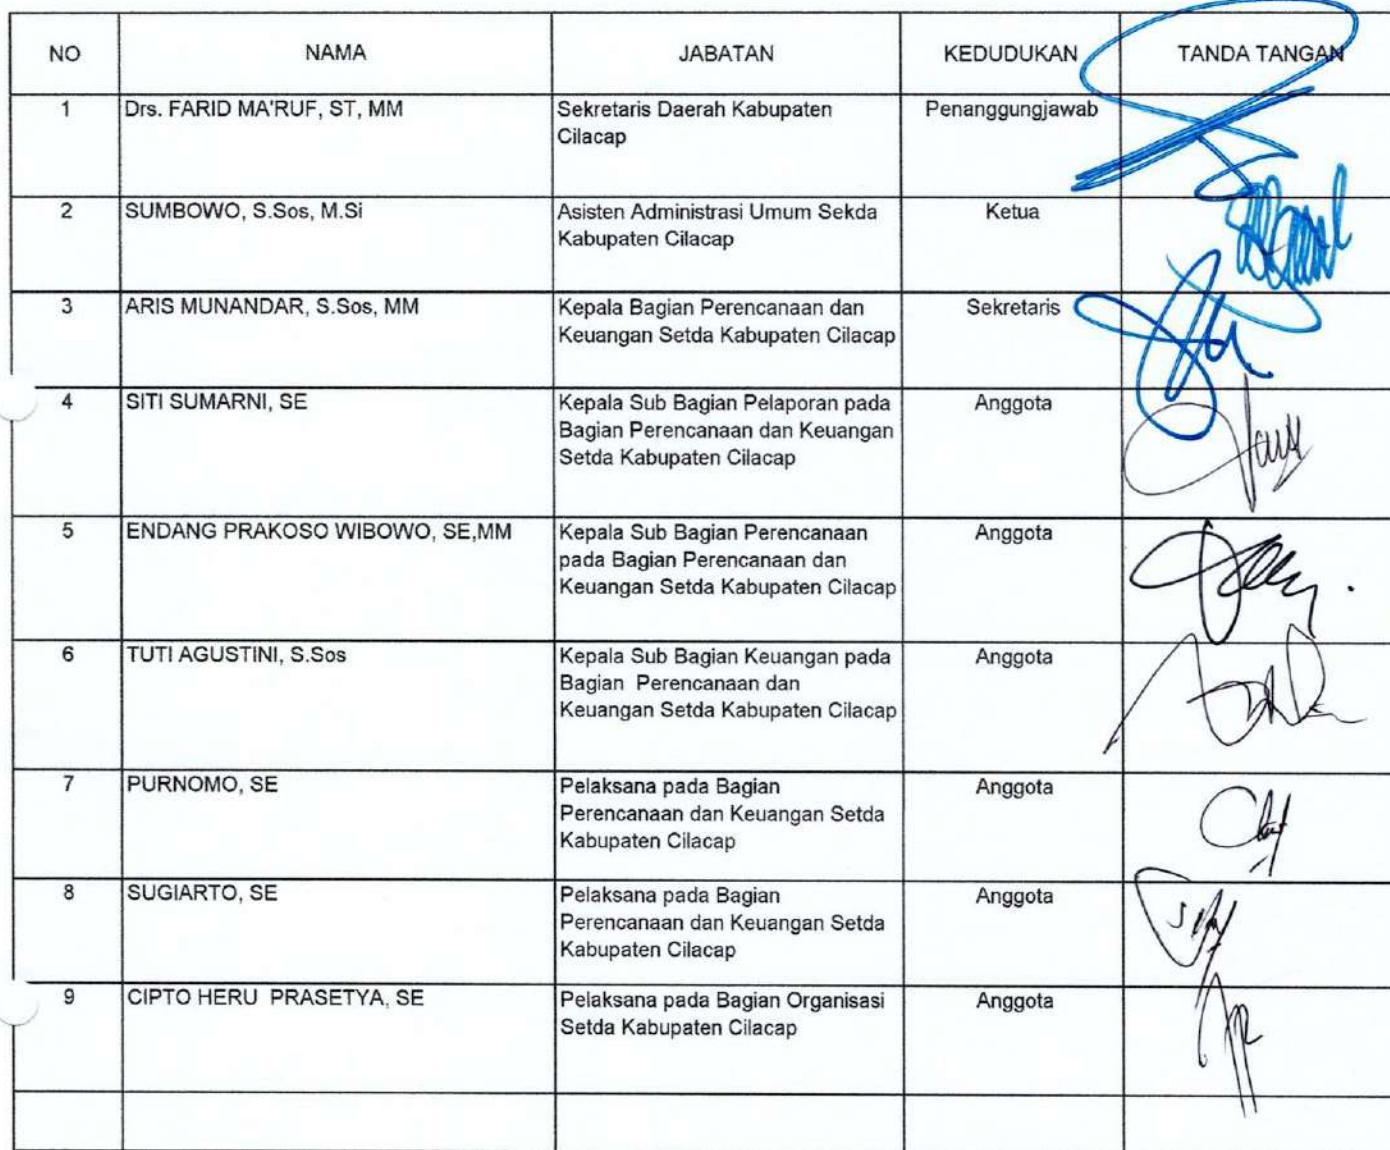 NO NAMA JABATAN KEDUDUKAN TANDA TANGAN
1 Drs. FARID MA'RUF, ST, MM Sekretaris Daerah Kabupaten Penanggungjawab
Cilacap
2 SUMBOWO, S.Sos, M.Si Asisten Administrasi Umum Sekda Ketua
Kabupaten Cilacap
3 ARIS MUNANDAR, S.Sos, MM Kepala Bagian Perencanaan dan Sekretaris
Keuangan Setda Kabupaten Cilacap
4 SITI SUMARNI, SE Kepala Sub Bagian Pelaporan pada Anggota
Bagian Perencanaan dan Keuangan
Setda Kabupaten Cilacap
5 ENDANG PRAKOSO WIBOWO, SE,MM Kepala Sub Bagian Perencanaan Anggota
pada Bagian Perencanaan dan
Keuangan Setda Kabupaten Cilacap
6 TUTI AGUSTINI, S.Sos Kepala Sub Bagian Keuangan pada Anggota
Bagian Perencanaan dan
Keuangan Setda Kabupaten Cilacap
7 PURNOMO, SE Pelaksana pada Bagian Anggota
Perencanaan dan Keuangan Setda
Kabupaten Cilacap
8 SUGIARTO, SE Pelaksana pada Bagian Anggota
Perencanaan dan Keuangan Setda
Kabupaten Cilacap
9 CIPTO HERU PRASETYA, SE Pelaksana pada Bagian Organisasi Anggota
Setda Kabupaten Cilacap